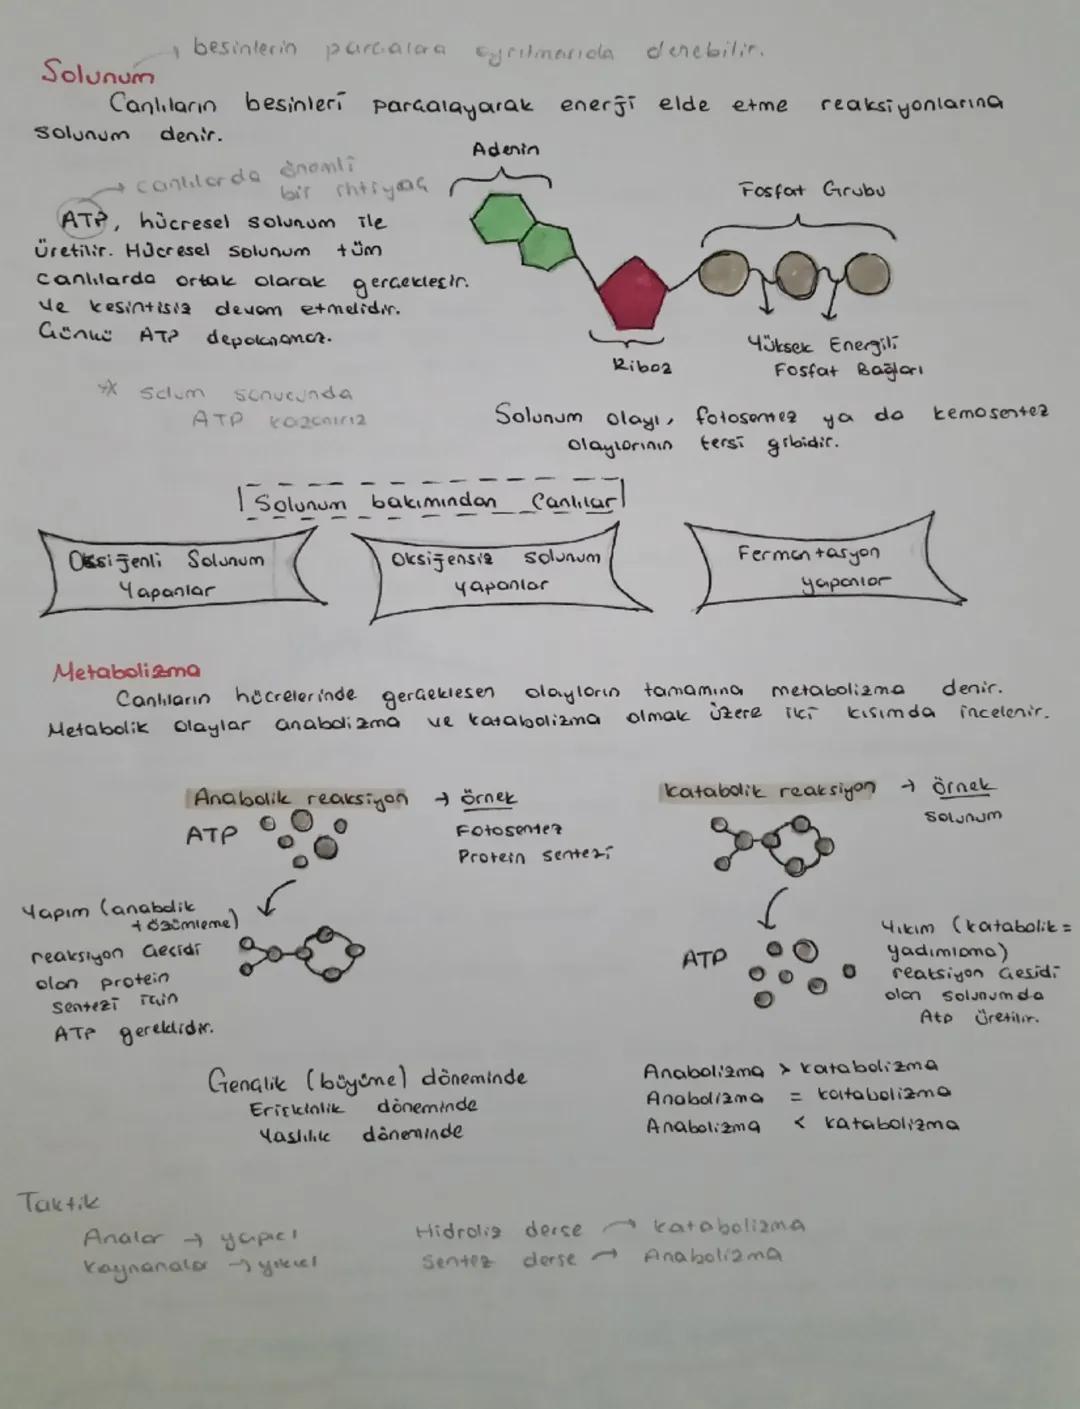 besinlerin parcalara ayrılmasıda denebilir.
Solunum
Canlıların besinleri parcalayarak enerji elde etme reaksiyonlarına
solunum denir.
canlılarda önemli
bir ihtiyaç
ATP, hücresel solunum ile
üretilir. Hücresel solunum tüm
canlılarda ortak olarak gerçekleşir.
ve kesintisiz devam etmelidir.
Çünkü ATP depolanamaz.
Adenin
Fosfat Grubu
Riboz
Yüksek Enerjili
Fosfat Bağları
solum sonucunda
ATP kazanırız
Solunum olayı, fotosentez ya da kemosentez
olaylarının tersi gibidir.
Solunum bakımından Canlılar
Oksijenli Solunum
Yapanlar
Oksijensiz solunum
yapanlar
Fermantasyon
yapanlar
Metabolizma
Canlıların hücrelerinde gerçeklesen olayların tamamına metabolizma denir.
Metabolik olaylar anabolizma ve katabolizma olmak üzere iki kısımda incelenir.
Anabolik reaksiyon → örnek
ATP
Fotosentez
Protein sentezi
Katabolik reaksiyon → örnek
Solunum
Yapım (anabolik
+ özümleme)
reaksiyon çeşidi
olan protein
sentezi için
ATP gereklidir.
ATP
Yıkım (katabolik =
yadımlama)
reaksiyon çesidi
olan solunumda
Atp üretilir.
Gençlik (büyüme) döneminde
Erişkinlik döneminde
Yaşlılık döneminde
Anabolizma > katabolizma
Anabolizma = katabolizma
Anabolizma < katabolizma
Taktik
Analar → yapıcı
Kaynanalar → yıkıcı
Hidroliz derse → katabolizma
Sentez derse → Anabolizma